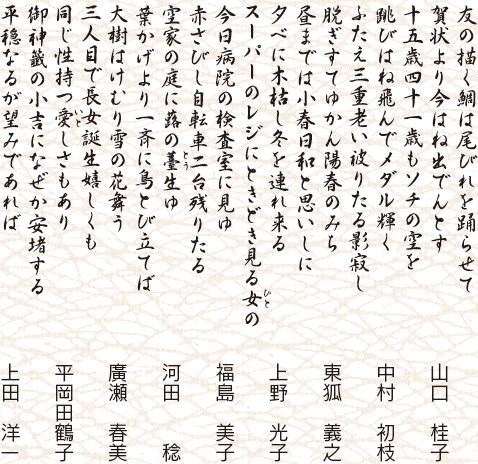 友の描く鯛は尾びれを踊らせて
賀状より今はね出でんとす
十五歳四十一歳もソチの空を
跳びはね飛んでメダル輝く
ふたえ三重老い被りたる影寂し
脱ぎすてゆかん陽春のみち
昼までは小春日和と思いしに
夕べに木枯し冬を連れ来る
スーパーのレジにときどき見る女の
ひと
今日病院の検査室に見ゆ
赤さびし自転車二台残りたる
空家の庭に蕗の薹生ゆ
とう
葉かげより一斉に鳥とび立てば
大樹はけむり雪の花舞う
三人目で長女誕生嬉しくも
同じ性持つ愛しさもあり
いと
御神籤の小吉になぜか安堵する
平穏なるが望みであれば
山口 桂子
中村 初枝
東狐 義之
上野 光子
福島 美子
河田 稔
廣瀬 春美
平岡田鶴子
上田 洋一